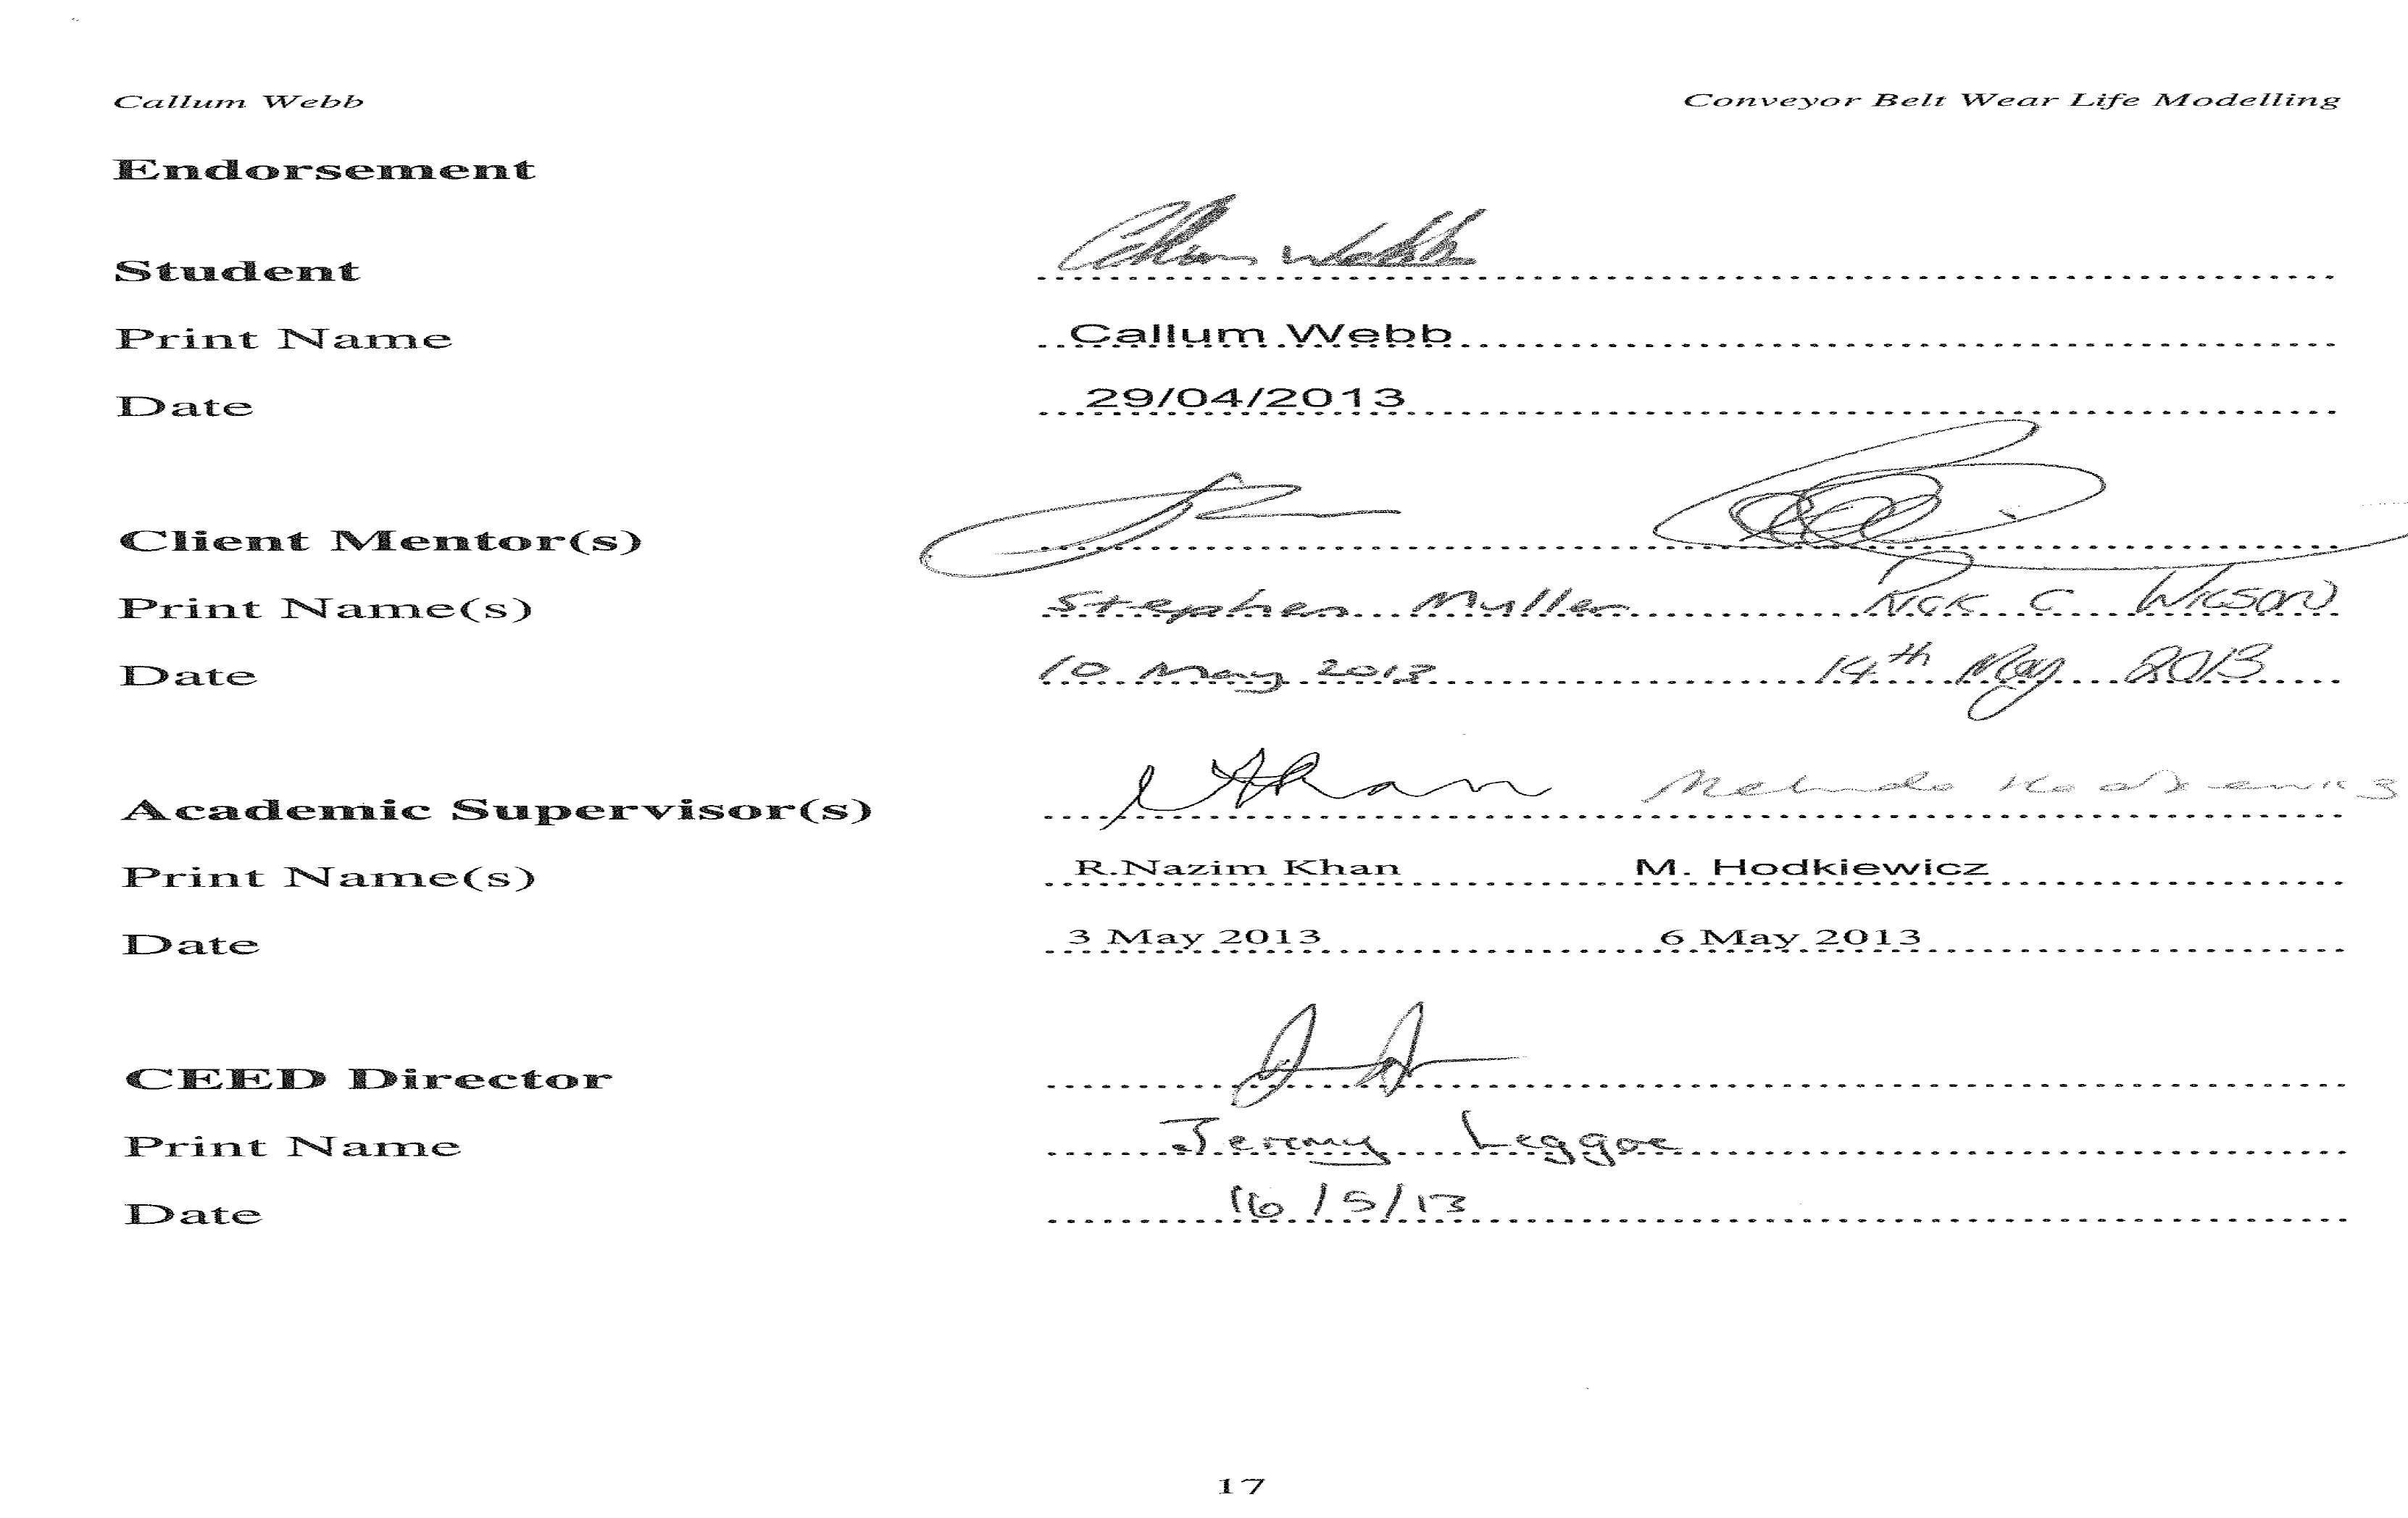 Callum Webb Conveyor Belt Wear Life Modelling
Endorsement
Callum Webb
Student
Print Name Callum Webb
Date 29/04/2013
Client Mentor(s)
Print Name(s) Stephen Muller Rick C Wilson
Date 10 May 2013 14th May 2013
Khan Melinda Hodkiewicz
Academic Supervisor(s)
Print Name(s) R.Nazim Khan M. Hodkiewicz
Date 3 May 2013 6 May 2013
CEED Director
Print Name Jeremy Leggoe
Date 16/5/13
17